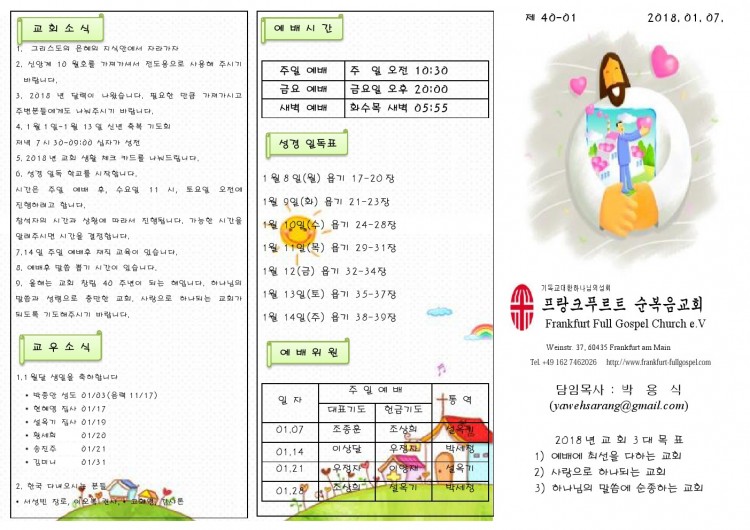 교 회 소 식
1. 그리스도의 은혜와 지식안에서 자라가자
2. 신앙계 10 월호를 가져가셔서 전도용으로 사용해 주시기
바랍니다.
3. 2018 년 달력이 나왔습니다. 필요한 만큼 가져가시고
주변분들에게도 나눠주시기 바랍니다.
4.1 월 1일-1 월 13 일 신년 축복 기도회
저녁 7 시 30-09:00 십자가 성전
5.2018 년 교회 생활 체크 카드를 나눠드립니다.
6. 성경 일독 학교를 시작합니다.
시간은 주일 예배 후, 수요일 11 시, 토요일 오전에
진행하려고 합니다.
참석자의 시간과 상황에 따라서 진행됩니다. 가능한 시간을
알려주시면 시간을 결정합니다.
7.14 일 주일 예배후 제직 교육이 있습니다.
8. 예배후 말씀 뽑기 시간이 있습니다.
9. 올해는 교회 창립 40 주년이 되는 해입니다. 하나님의
말씀과 성령으로 충만한 교회, 사랑으로 하나되는 교회가
되도록 기도해주시기 바랍니다.
교 우 소 식
1.1 월달 생일을 축하합니다
• 박종만 성도 01/03(음력 11/17)
• 현혜영 집사 01/17
• 설옥기 집사 01/19
• 황세희 01/20
• 송진주 01/21
• 김미나 01/31
2. 한국 다녀오시는 분들
• 서성빈 장로,
예 배 시 간
주일 예배 주 일 오전 10:30
금요 예배 금요일 오후 20:00
새벽 예배 화수목 새벽 05:55
성경 일독표
1 월 8 일(월) 욥기 17-20 장
1 월 9일(화) 욥기 21-23장
1월 10일(수) 욥기 24-28장
1월 11일(목) 욥기 29-31장
1월 12(금) 욥기 32-34장
1월 13일(토) 욥기 35-37장
1월 14일(주) 욥기 38-39장
예 배 위 원
일 자 주 일 예 배 통 역
대표기도 헌금기도
01.07 조종훈 조상희 설옥기
01.14 이상달 우정자 박세정
01.21 우정자 설옥기
01.28 조상희 설옥기 박세정
제 40-01 2018. 01. 07.
기독교대한하나님의성회
프랑크푸르트 순복음교회
Frankfurt Full Gospel Church e.V
Weinstr. 37, 60435 Frankfurt am Main
Tel. +49 162 7462026 http://www.frankfurt-fullgospel.com
담임목사 : 박 용 식
(yawehsarang@gmail.com)
2018 년 교 회 3 대 목 표
1) 예배에 최선을 다하는 교회
2) 사랑으로 하나되는 교회
3) 하나님의 말씀에 순종하는 교회